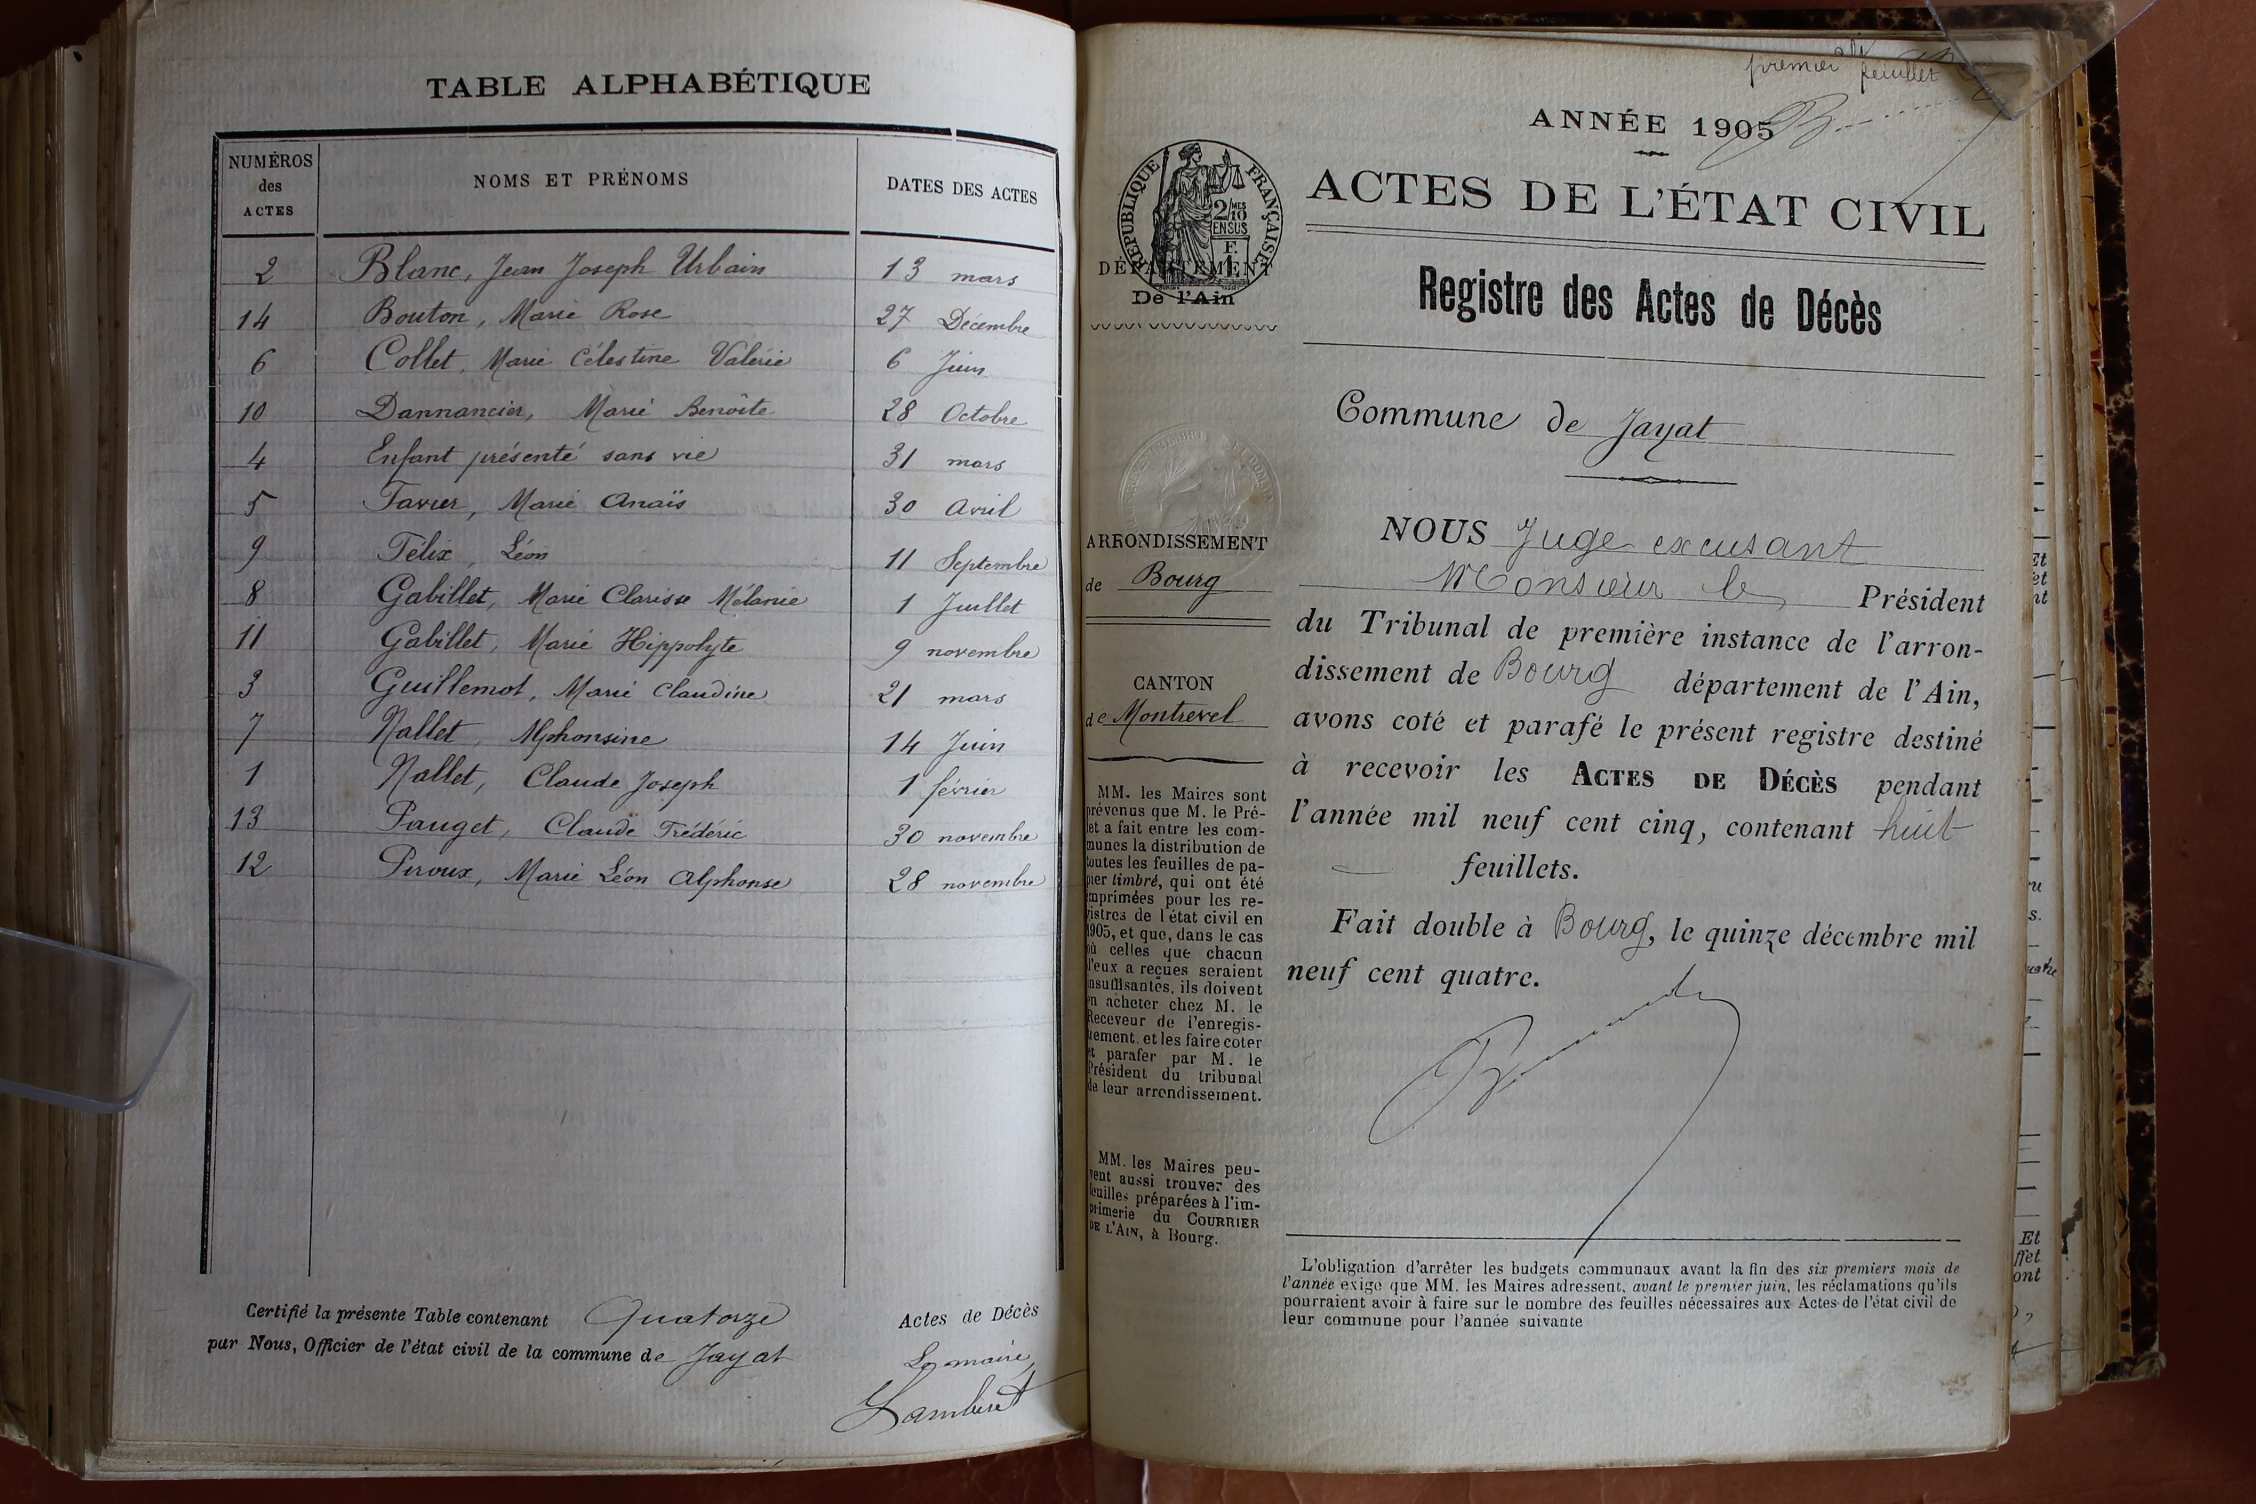 TABLE ALPHABÉTIQUE
NUMÉROS des ACTES
NOMS ET PRÉNOMS
DATES DES ACTES
2 Blanc, Jean Joseph Urbain 13 mars
14 Bouton, Marie Rose 27 Décembre
6 Collet, Marie Célestine Valérie 6 Juin
10 Dannancier, Marie Benoîte 28 Octobre
4 Enfant présenté sans vie 31 mars
5 Favier, Marie Anaïs 30 Avril
9 Félix, Léon 11 Septembre
8 Gabillet, Marie Clarisse Mélanie 1 Juillet
11 Gabillet, Marie Hippolyte 9 novembre
3 Guillemot, Marie Claudine 21 mars
7 Nallet, Alphonsine 14 Juin
1 Nallet, Claude Joseph 1 février
13 Pauget, Claude Frédéric 30 novembre
12 Piroux, Marie Léon Alphonse 28 novembre
Certifié la présente Table contenant Quatorze Actes de Décès
par Nous, Officier de l'état civil de la commune de Jayat
Le maire,
Lambert
premier feuillet
ANNÉE 1905
ACTES DE L'ÉTAT CIVIL
RÉPUBLIQUE FRANÇAISE
2/10 MES
EN SUS
DÉPARTEMENT
De l'Ain
Registre des Actes de Décès
Commune de Jayat
ARRONDISSEMENT
de Bourg
CANTON
de Montrevel
MM. les Maires sont
prévenus que M. le Pré-
fet a fait entre les com-
munes la distribution de
toutes les feuilles de pa-
pier timbré, qui ont été
imprimées pour les re-
gistres de l'état civil en
1905, et que, dans le cas
où celles que chacun
d'eux a reçues seraient
insuffisantes, ils doivent
en acheter chez M. le
Receveur de l'enregis-
trement, et les faire coter
et parafer par M. le
Président du tribunal
de leur arrondissement.
MM. les Maires peu-
vent aussi trouver des
feuilles préparées à l'im-
primerie du COURRIER
DE L'AIN, à Bourg.
NOUS Juge excusant
Monsieur le Président
du Tribunal de première instance de l'arron-
dissement de Bourg département de l'Ain,
avons coté et parafé le présent registre destiné
à recevoir les ACTES DE DÉCÈS pendant
l'année mil neuf cent cinq, contenant huit
feuillets.
Fait double à Bourg, le quinze décembre mil
neuf cent quatre.
L'obligation d'arrêter les budgets communaux avant la fin des six premiers mois de
l'année exige que MM. les Maires adressent, avant le premier juin, les réclamations qu'ils
pourraient avoir à faire sur le nombre des feuilles nécessaires aux Actes de l'état civil de
leur commune pour l'année suivante